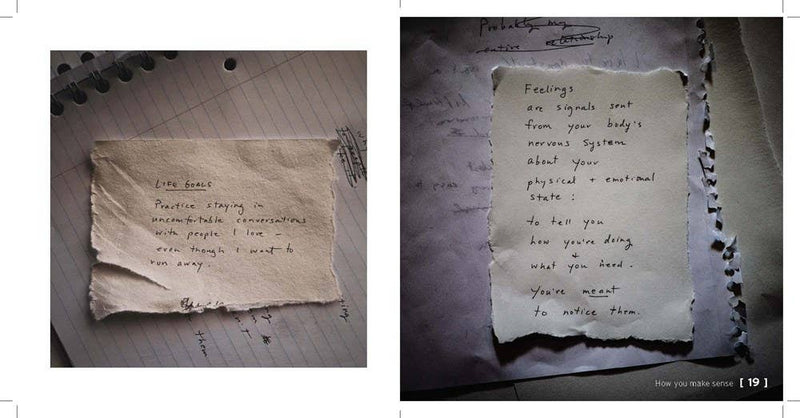 LIFE GOALS
Practice staying in
uncomfortable conversations
with people I love —
even though I want to
run away.
them
Probably my
entire relationship
Feelings
are signals sent
from your body's
nervous system
about your
physical + emotional
state:
to tell you
how you're doing
+
what you need.
You're meant
to notice them.
How you make sense [ 19 ]